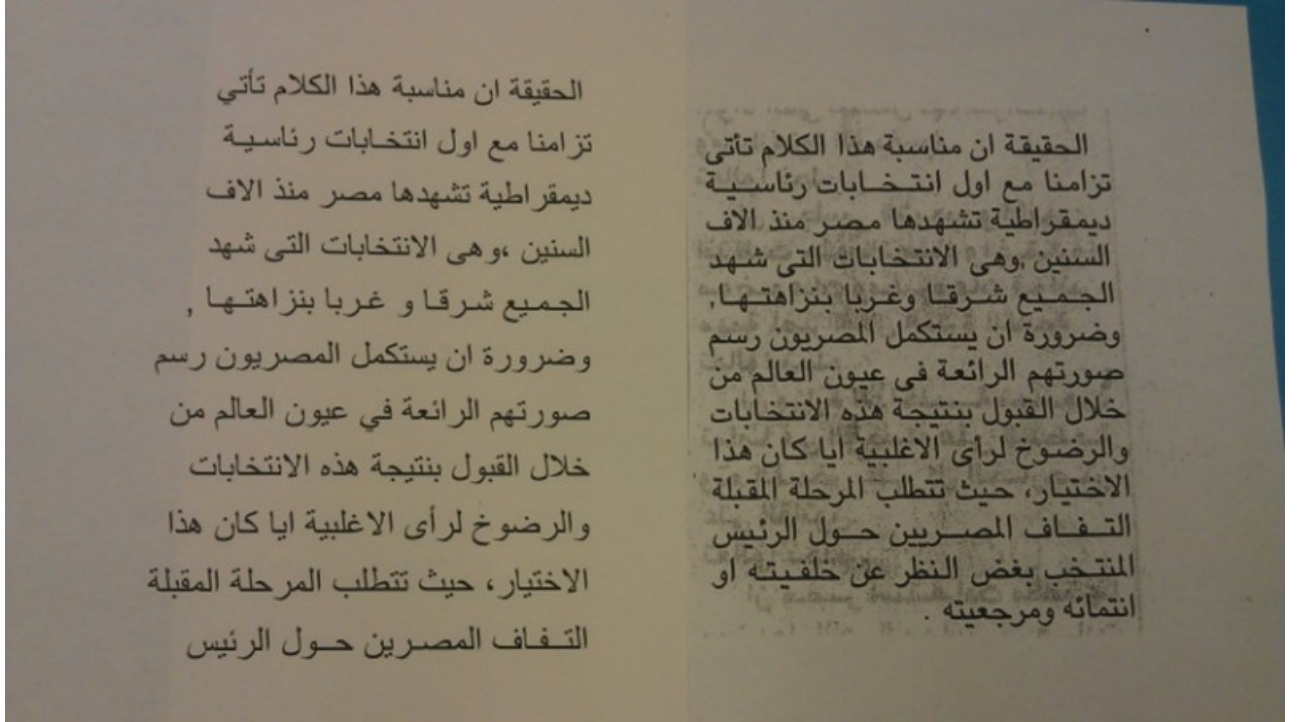 الحقيقة ان مناسبة هذا الكلام تأتى
تزامنا مع اول انتـخــابات رئاسـيـة
ديمقراطية تشهدها مصر منذ الاف
السنين ,وهى الانتخابات التى شهد
الجـمـيع شـرقـا وغـربا بنزاهتـهـا,
وضرورة ان يستكمل المصريون رسم
صورتهم الرائعة فى عيون العالم من
خلال القبول بنتيجة هذه الانتخابات
والرضوخ لرأى الاغلبية ايا كان هذا
الاختيار، حيث تتطلب المرحلة المقبلة
التـفـاف المصـريين حـول الرئيس
المنتخب بغض النظر عن خلفيته او
انتمائه ومرجعيته .
الحقيقة ان مناسبة هذا الكلام تأتي
تزامنا مع اول انتخـابات رئاسـيـة
ديمقراطية تشهدها مصر منذ الاف
السنين ،وهى الانتخابات التى شهد
الجـمـيع شـرقـا و غـربا بنزاهتـهـا ,
وضرورة ان يستكمل المصريون رسم
صورتهم الرائعة في عيون العالم من
خلال القبول بنتيجة هذه الانتخابات
والرضوخ لرأى الاغلبية ايا كان هذا
الاختيار، حيث تتطلب المرحلة المقبلة
التـفـاف المصـرين حـول الرئيس